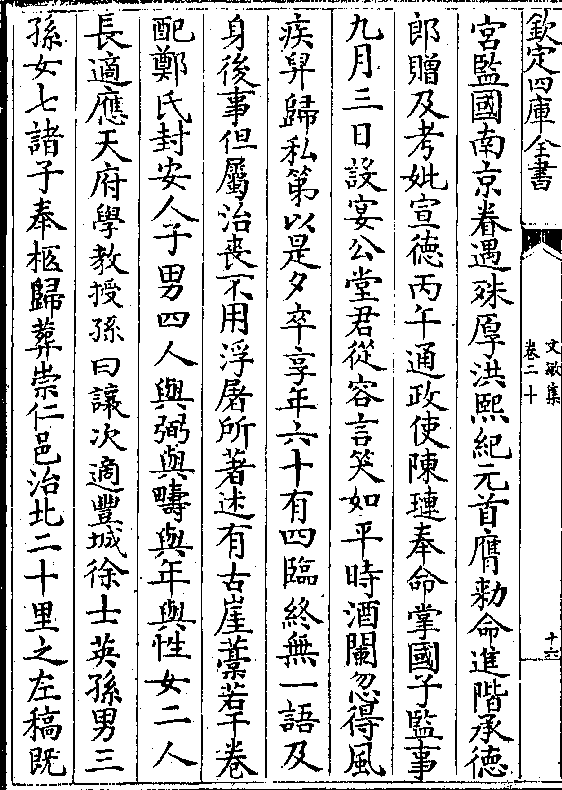 欽定四庫全書
文敏集
卷二十
十六
宮監國南京眷遇殊厚洪熙紀元首膺勅命進階承德
郎贈及考妣宣德丙午通政使陳璉奉命掌國子監事
九月三日設宴公堂君從容言笑如平時酒闌忽得風
疾舁歸私第以是夕卒享年六十有四臨終無一語及
身後事但屬治喪不用浮屠所著述有古崖藁若干卷
配鄭氏封安人子男四人與弼與疇與年與性女二人
長適應天府學教授孫曰讓次適豐城徐士英孫男三
孫女七諸子奉柩歸葬崇仁邑治北二十里之左稿既